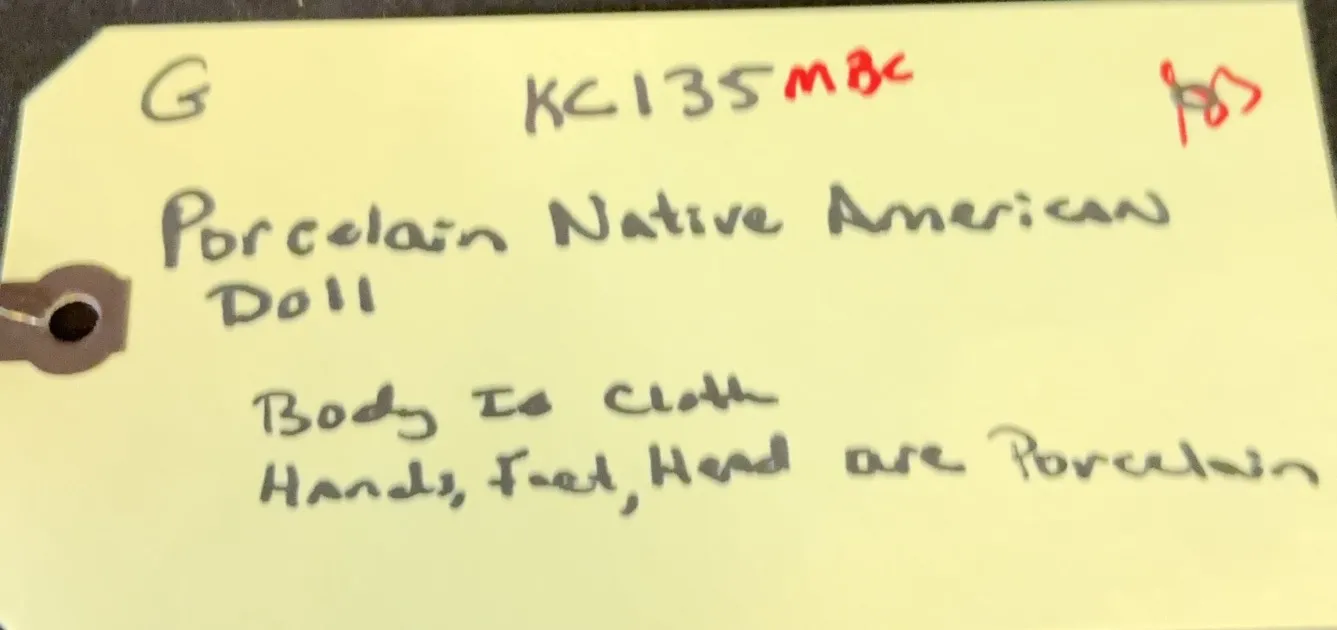 G KC135 MBC
Porcelain Native American
Doll
Body Is Cloth
Hands, Feet, Head are Porcelain